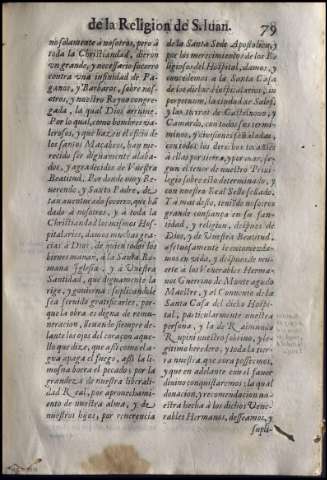 de la Religion de S. Iuan.
79
no solamente à nosotros, pero à
toda la Christiandad, dieron
vn grande, y necessario socorro
contra vna infinidad de Pa-
ganos, y Barbaros, sobre nos-
otros, y nuestro Reyno congre-
gada, la qual Dios arruine.
Por lo qual, como hombres va-
lerosos, y que hazen el oficio de
los santos Macabeos, han me-
recido ser dignamente alaba-
dos, y agradecidos de Vuestra
Beatitud. Por donde muy Re-
uerendo, y Santo Padre, de
tan auentajado socorro, que hã
dado à nosotros, y à toda la
Christiandad los mismos Hos-
pitalarios, damos muchas gra-
cias à Dios, de quien todos los
bienes manan, à la Santa Ro-
mana Iglesia, y a Vuestra
Santidad, que dignamente la
rige, y gouierna: suplicandole
sea seruido gratificarles, por-
que la obra es digna de remu-
neracion, lleuando siempre de-
lante los ojos del coraçon aque-
llo que dize, que assi como el a-
gua apaga el fuego, assi la li-
mosna borra el pecado; por la
grandeza de nuestra liberali-
dad Real, por aprouechamien-
to de nuestra alma, y de
nuestros hijos, por reuerencia
de la Santa Sede Apostolica, y
por los merecimientos de los Re-
ligiosos del Hospital, damos, y
concedemos a la Santa Casa
de los dichos Hospitalarios, in
perpetuum, la ciudad de Salef,
y las tierras de Castelnouo, y
Camardo, con todos sus termi-
minos, y chusanos señaladas,
con todos los derechos tocantes
à ellas por tierra, y por mar, se-
gun el tenor de nuestro Priui-
legio sobre ello determinado, y
con nuestro Real Sello sellado.
Y à mas desto, teniendo nosotros
grande confiança en su san-
tidad, y religion, despues de
Dios, y de Vuestra Beatitud,
afectuosamente de encomenda-
mos en vida, y despues de mu-
erte a los Venerables Herma-
nos Guerino de Monte agudo
Maestre, y al Conuento de la
Santa Casa del dicho Hospi-
tal, particularmente nuestra
persona, y la de Raimundo
Rupini nuestro sobrino, y le-
gitimo heredero, y toda la tier-
ra nuestra que aora posseemos,
y que en adelante con el fauor
diuino conquistaremos; la qual
donacion, y recomendacion nu-
estra hecha à los dichos Vene-
rables Hermanos, desseamos, y
supli-